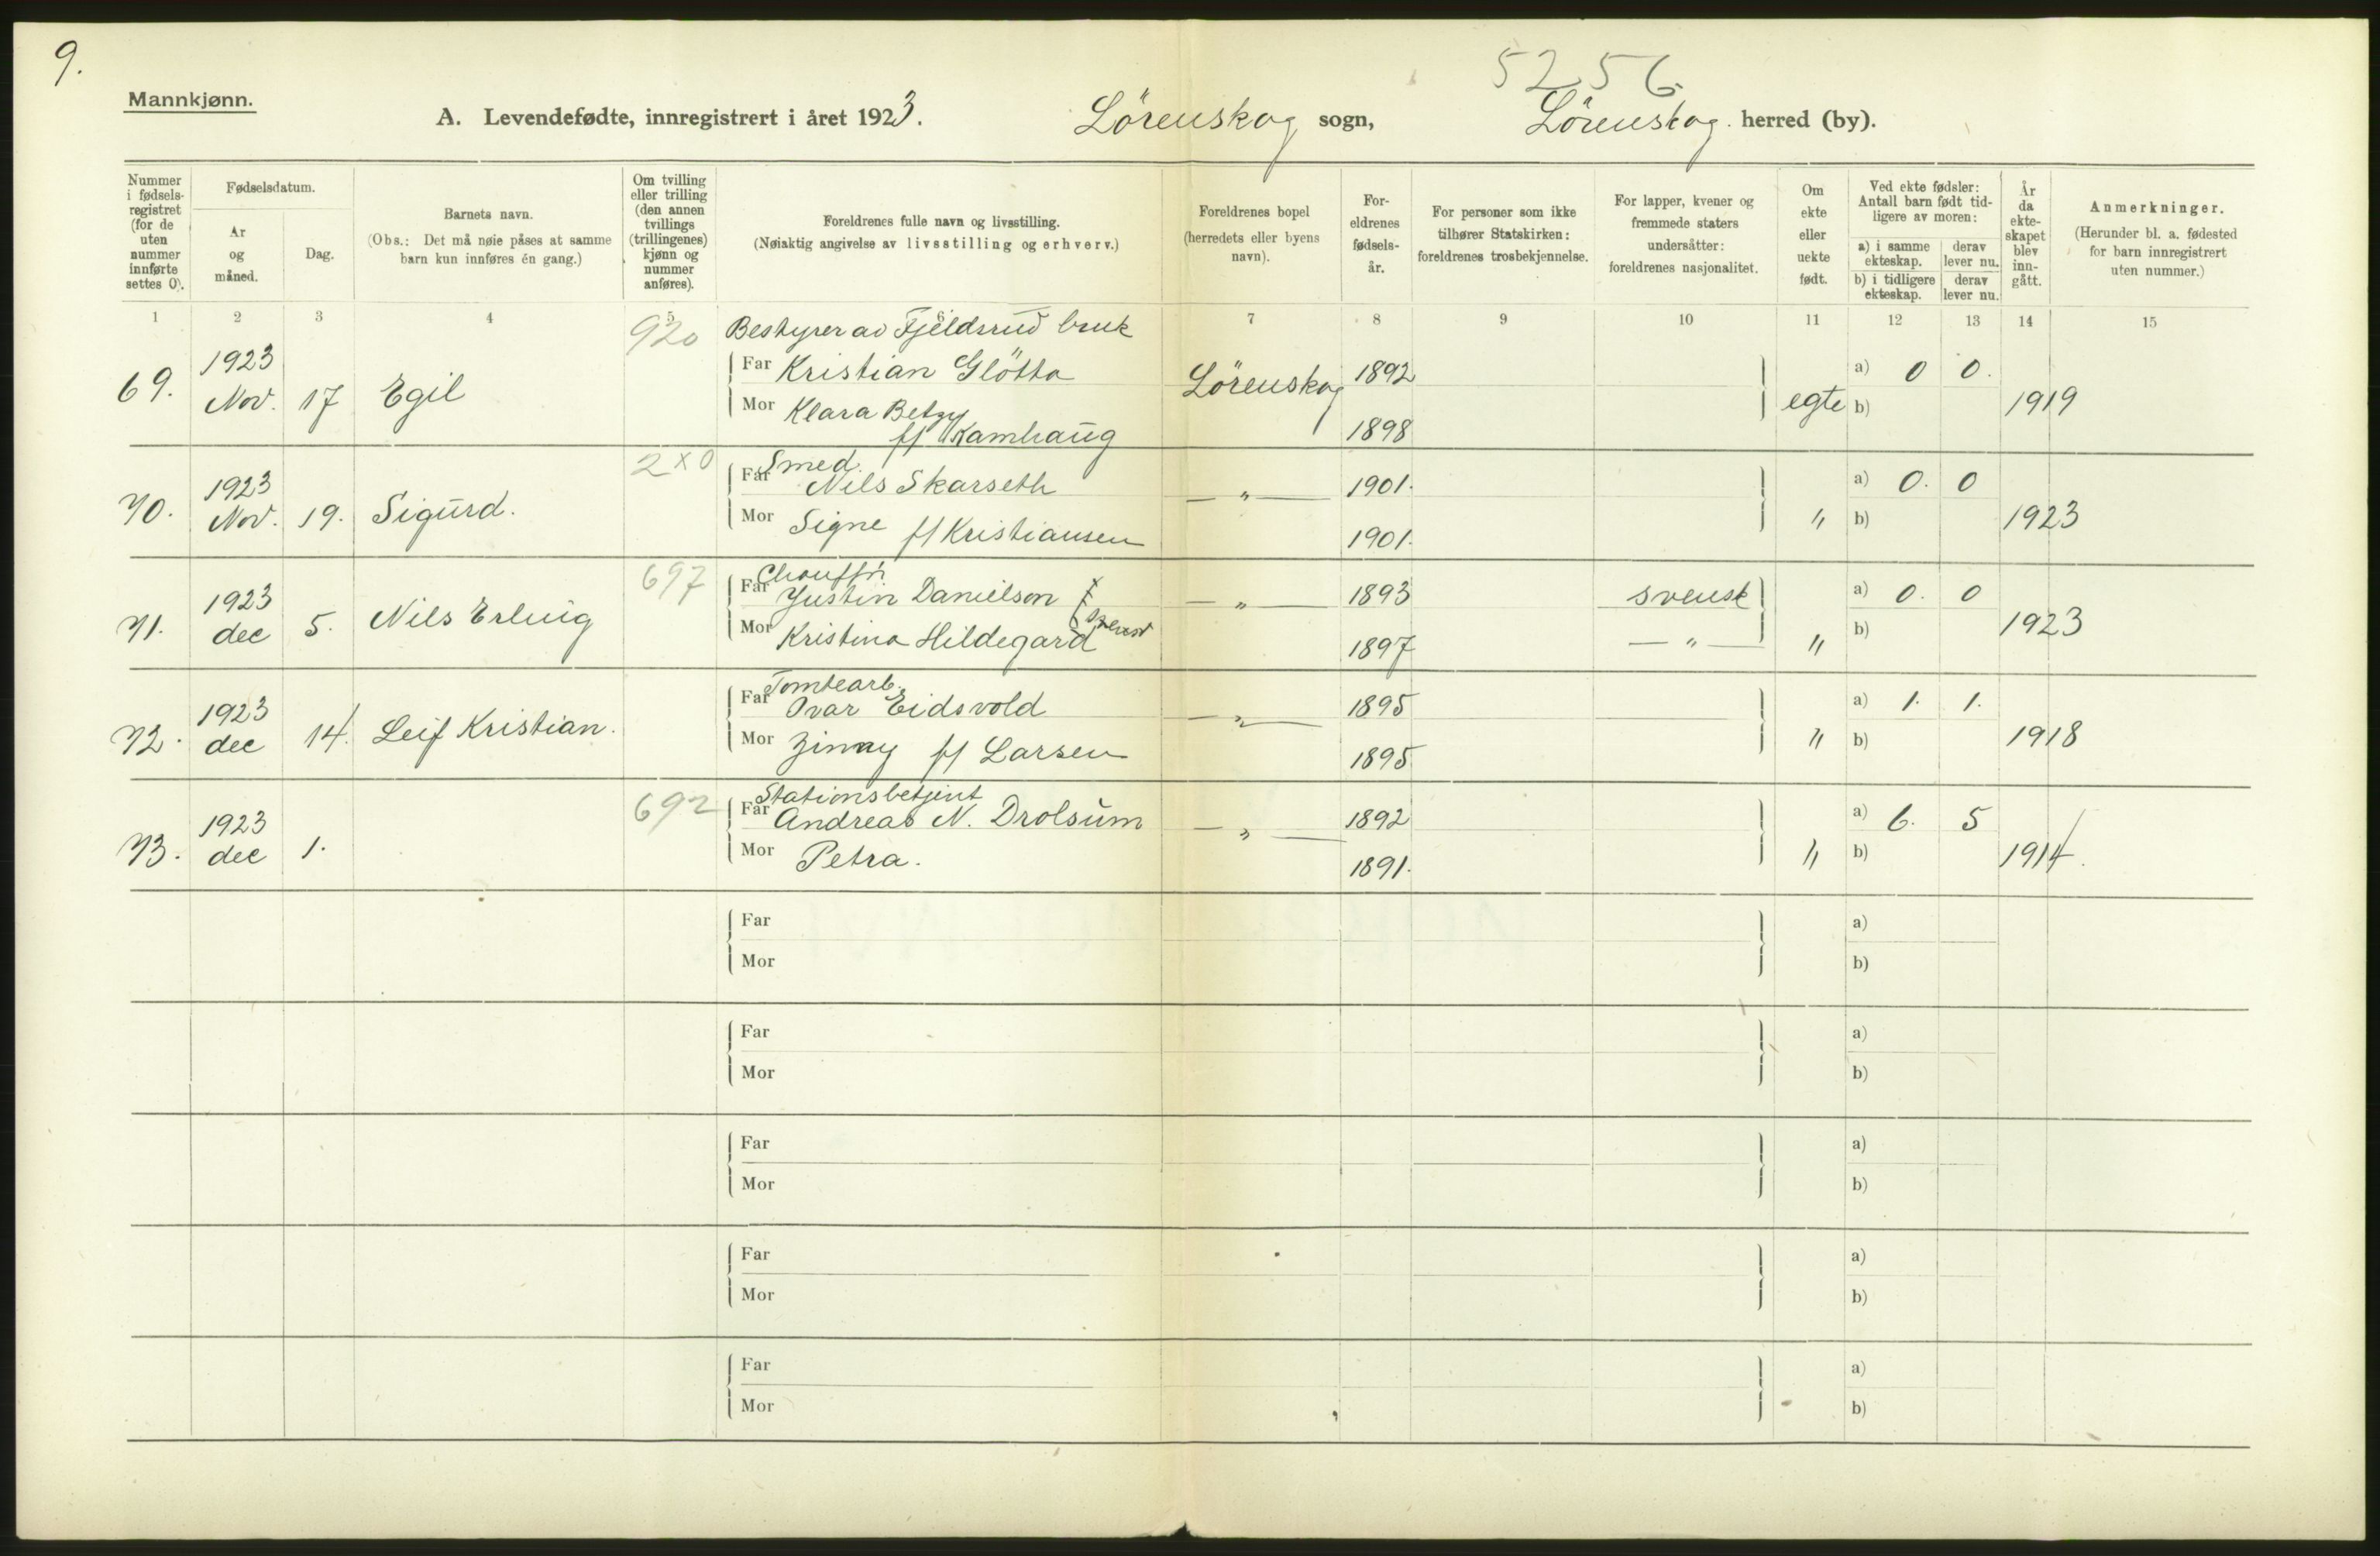 9.
5256
Mannkjønn.
A. Levendefødte, innregistrert i året 1923. Lörenskog sogn, Lörenskog. herred (by).
Nummer i fødsels-registret (for de uten nummer innførte settes 0).
Fødselsdatum.
År og måned.
Dag.
Barnets navn.
(Obs.: Det må nøie påses at samme barn kun innføres én gang.)
Om tvilling eller trilling (den annen tvillings (trillingenes) kjønn og nummer anføres).
Foreldrenes fulle navn og livsstilling.
(Nøiaktig angivelse av livsstilling og erhverv.)
Foreldrenes bopel (herredets eller byens navn).
For-eldrenes fødsels-år.
For personer som ikke tilhører Statskirken: foreldrenes trosbekjennelse.
For lapper, kvener og fremmede staters undersåtter: foreldrenes nasjonalitet.
Om ekte eller uekte født.
Ved ekte fødsler: Antall barn født tid-ligere av moren:
a) i samme ekteskap. derav lever nu.
b) i tidligere ekteskap. derav lever nu.
År da ekte-skapet blev inn-gått.
Anmerkninger.
(Herunder bl. a. fødested for barn innregistrert uten nummer.)
1 2 3 4 5 6 7 8 9 10 11 12 13 14 15
920 Bestyrer av Fjeldsrud bruk
69. 1923 Nov. 17 Egil Far Kristian Glötta Lörenskog 1892 egte a) 0 0. b) 1919
Mor Klara Betzy
f/ Kamhaug 1898
2x0 Smed.
70. 1923 Nov. 19. Sigurd. Far Nils Skarseth — „ — 1901. „ a) 0. 0 b) 1923
Mor Signe f/ Kristiansen 1901.
697
71. 1923 dec 5. Nils Erling Far Justin Danielson — „ — 1893 svensk „ a) 0. 0 b) 1923
Mor Kristina Hildegard 1897 — „ —
Tomtearb.
72. 1923 dec 14. Leif Kristian. Far Ovar Eidsvold — „ — 1895 „ a) 1. 1. b) 1918
Mor f/ Larsen 1895
692 Stationsbetjent
73. 1923 dec 1. Far Andreas N. Drolsum — „ — 1892 „ a) 6. 5 b) 1914.
Mor Petra. 1891.
Far a)
Mor b)
Far a)
Mor b)
Far a)
Mor b)
Far a)
Mor b)
Far a)
Mor b)